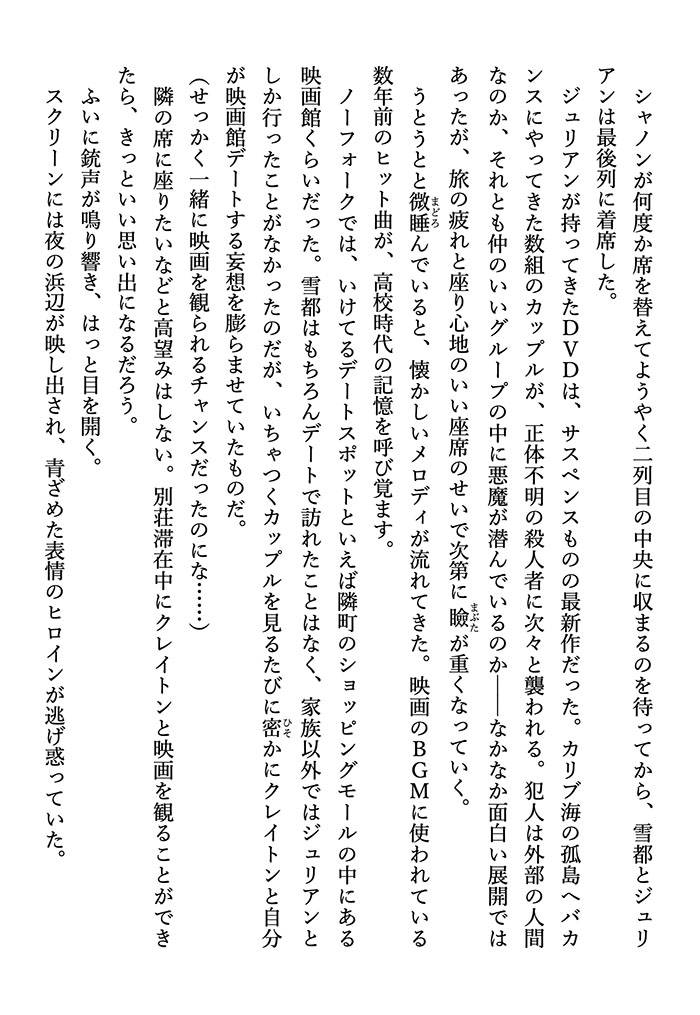 シャノンが何度か席を替えてようやく二列目の中央に収まるのを待ってから、雪都とジュリ
アンは最後列に着席した。
ジュリアンが持ってきたＤＶＤは、サスペンスものの最新作だった。カリブ海の孤島へバカ
ンスにやってきた数組のカップルが、正体不明の殺人者に次々と襲われる。犯人は外部の人間
なのか、それとも仲のいいグループの中に悪魔が潜んでいるのか――なかなか面白い展開では
あったが、旅の疲れと座り心地のいい座席のせいで次第に瞼（まぶた）が重くなっていく。
うとうとと微睡（まどろ）んでいると、懐かしいメロディが流れてきた。映画のＢＧＭに使われている
数年前のヒット曲が、高校時代の記憶を呼び覚ます。
ノーフォークでは、いけてるデートスポットといえば隣町のショッピングモールの中にある
映画館くらいだった。雪都はもちろんデートで訪れたことはなく、家族以外ではジュリアンと
しか行ったことがなかったのだが、いちゃつくカップルを見るたびに密（ひそ）かにクレイトンと自分
が映画館デートする妄想を膨らませていたものだ。
（せっかく一緒に映画を観られるチャンスだったのにな……）
隣の席に座りたいなどと高望みはしない。別荘滞在中にクレイトンと映画を観ることができ
たら、きっといい思い出になるだろう。
ふいに銃声が鳴り響き、はっと目を開く。
スクリーンには夜の浜辺が映し出され、青ざめた表情のヒロインが逃げ惑っていた。